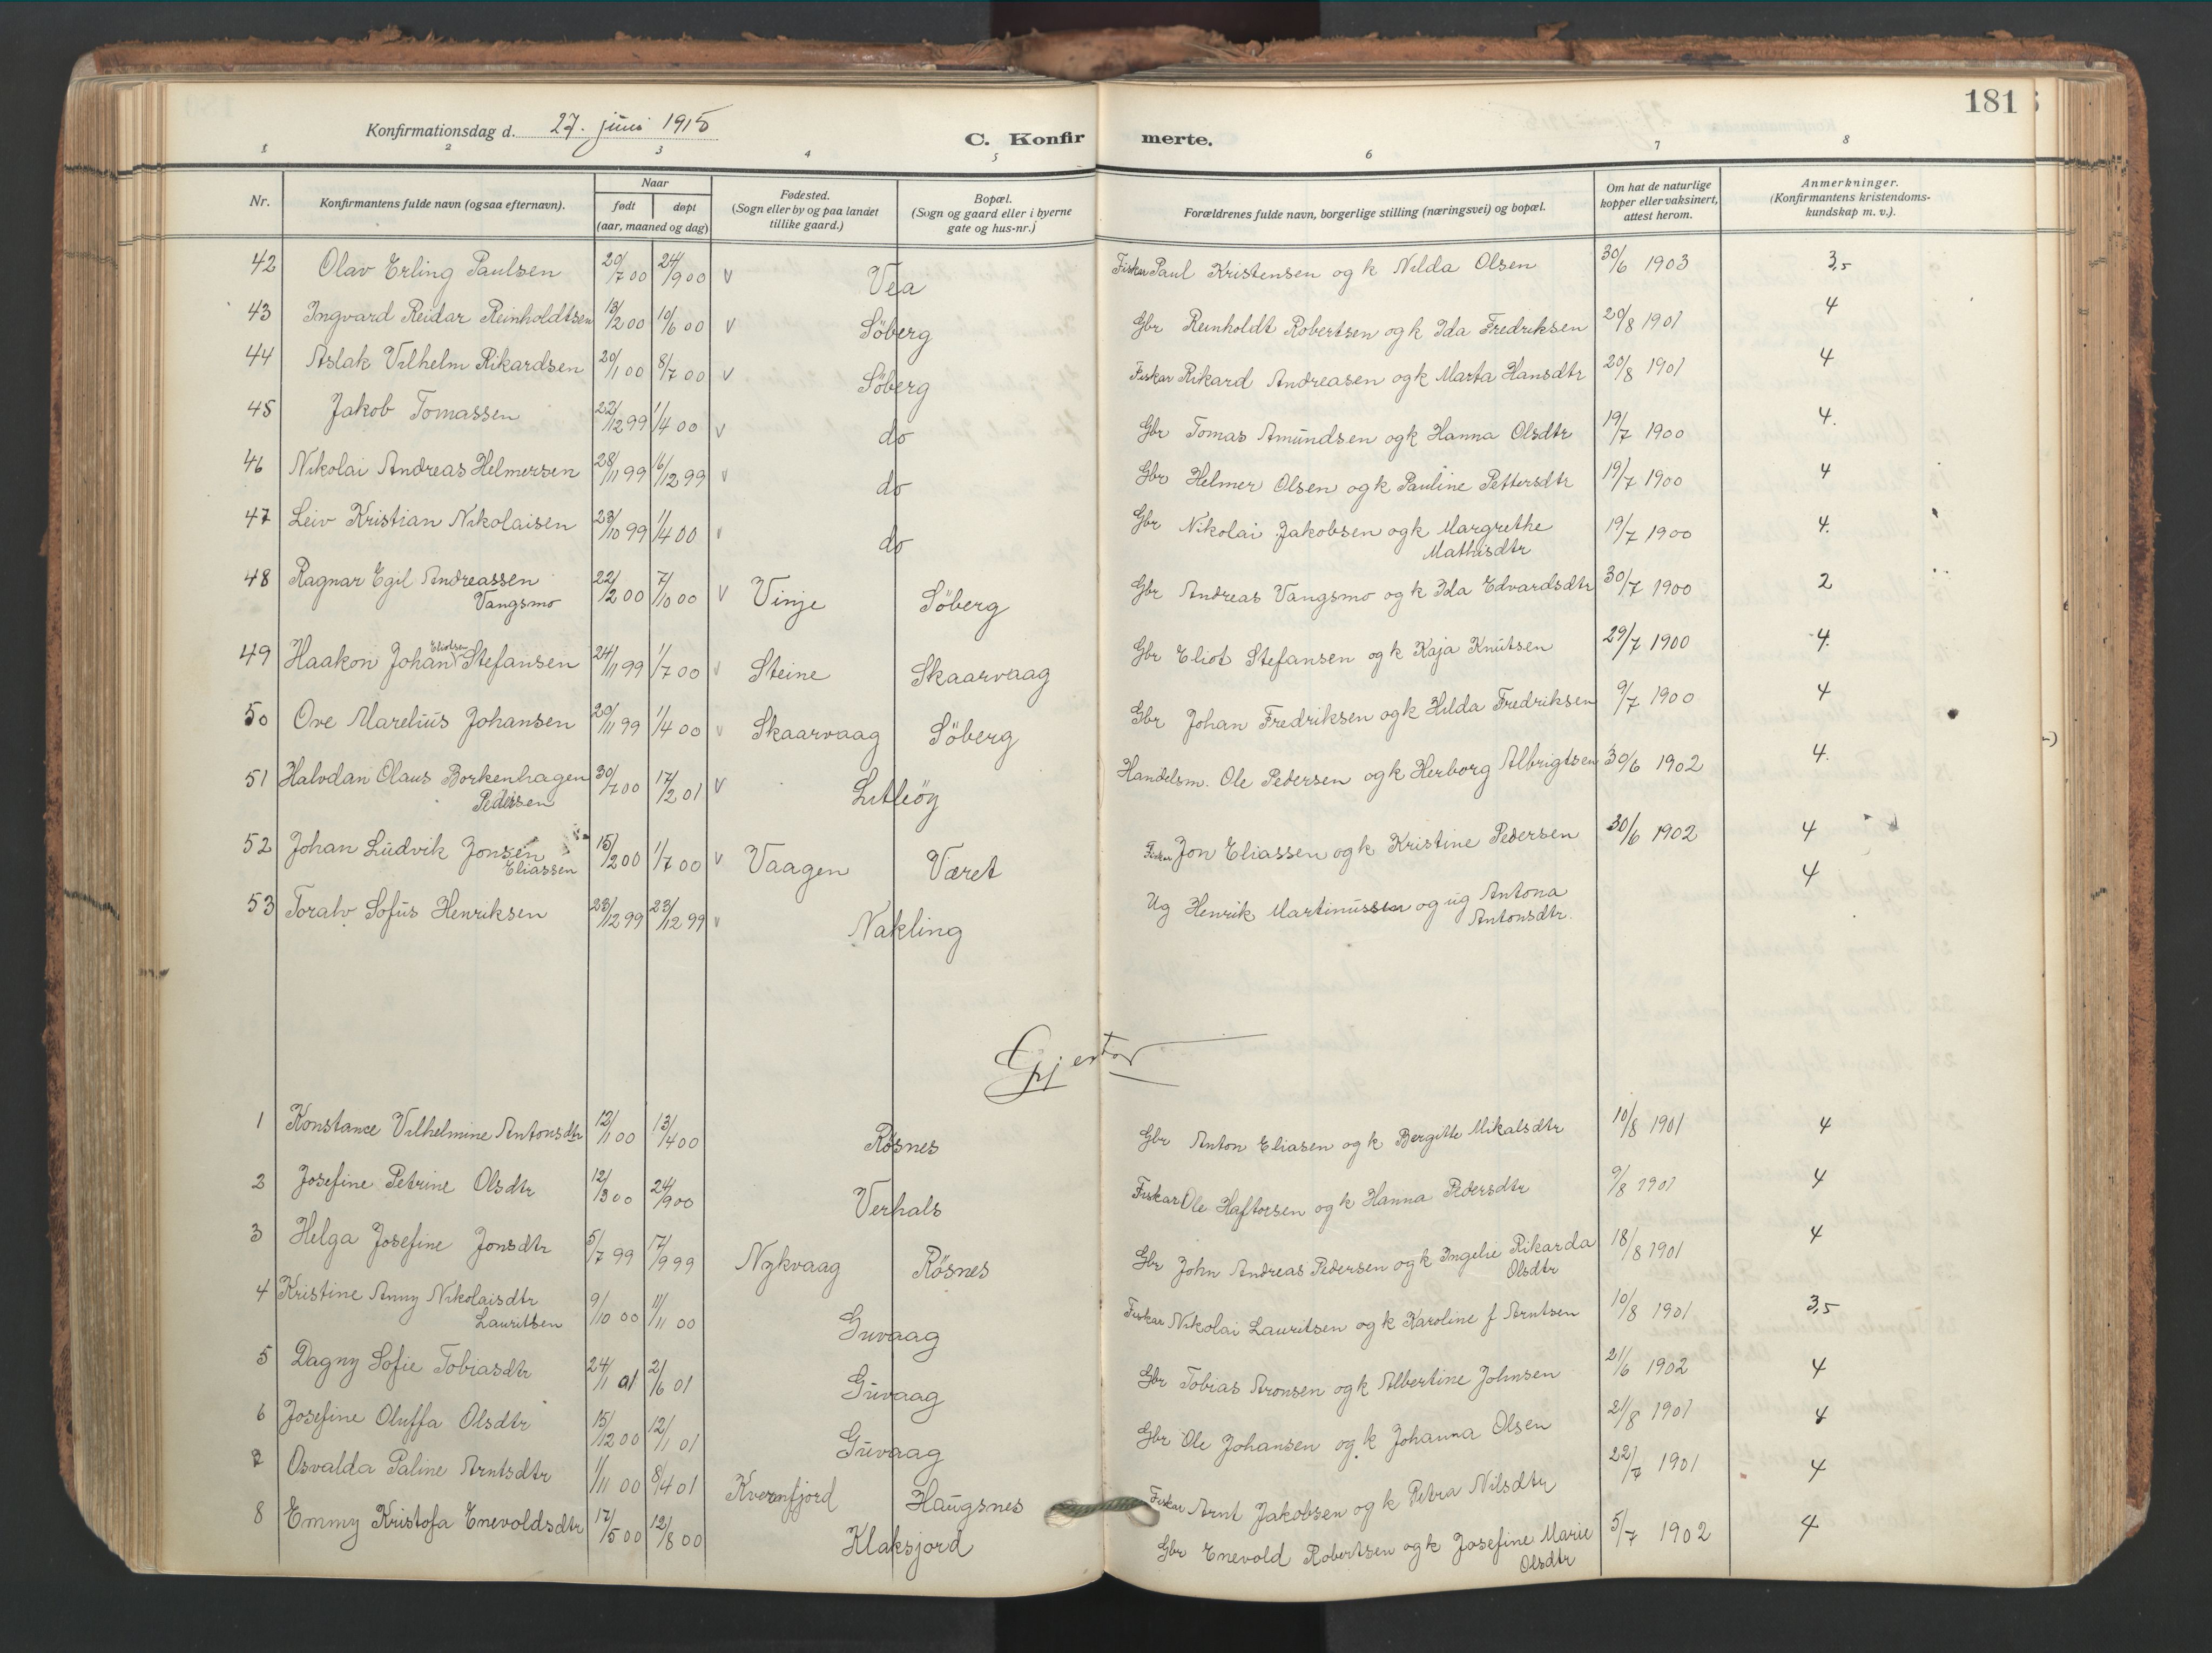 181
Konfirmationsdag d. 27. juni 1915
C. Konfirmerte.
1 2 3 4 5 6 7 8
Nr. Konfirmantens fulde navn (ogsaa efternavn). Naar født døpt (aar, maaned og dag) Fødested. (Sogn eller by og paa landet tillike gaard.) Bopæl. (Sogn og gaard eller i byerne gate og hus-nr.) Forældrenes fulde navn, borgerlige stilling (næringsvei) og bopæl. Om hat de naturlige kopper eller vaksinert, attest herom. Anmerkninger. (Konfirmantens kristendoms-kundskap m. v.).
42 Olav Erling Paulsen 20/7 00 24/9 00 v Vea Fiskar Paul Kristensen og k Nilda Olsen 30/6 1903 3,5
43 Ingvard Reidar Reinholdtsen 13/2 00 10/6 00 v Söberg Gbr Reinholdt Robertsen og k Ida Fredriksen 20/8 1901 4
44 Aslak Vilhelm Rikardsen 20/1 00 8/7 00 v Söberg Fiskar Rikard Andreasen og k Marta Hansdtr 20/8 1901 4
45 Jakob Tomassen 22/12 99 1/4 00 v do Gbr Tomas Amundsen og k Hanna Olsdtr 19/7 1900 4.
46 Nikolai Andreas Helmersen 28/11 99 16/12 99 v do Gbr Helmer Olsen og k Pauline Pettersdtr 19/7 1900 4
47 Leiv Kristian Nikolaisen 23/10 99 1/4 00 v do Gbr Nikolai Jakobsen og k Margrethe Mathisdtr 19/7 1900 4.
48 Ragnar Egil Andreassen Vangsmo 22/2 00 7/10 00 v Vinje Söberg Gbr Andreas Vangsmo og k Ida Edvardsdtr 30/7 1900 2
49 Haakon Johan Eliotsen Stefansen 24/11 99 1/7 00 v Steine Skaarvaag Gbr Eliot Stefansen og k Kaja Knutsen 29/7 1900 4.
50 Ove Marelius Johansen 20/11 99 1/4 00 v Skaarvaag Söberg Gbr Johan Fredriksen og k Hilda Fredriksen 9/7 1900 4
51 Halvdan Olaus Borkenhagen Pedersen 30/7 00 17/2 01 v Litleöy Handelsm. Ole Pedersen og k Herborg Albrigtsen 30/6 1902 4.
52 Johan Ludvik Jonsen Eliassen 15/2 00 1/7 00 v Vaagen Været Fiskar Jon Eliassen og k Kristine Pedersen 30/6 1902 4
53 Toralv Sofus Henriksen 23/12 99 23/12 99 v Nakling Ug Henrik Martinussen og ug Antona Antonsdtr. 4
Gjestar
1 Konstance Vilhelmine Antonsdtr 12/1 00 13/4 00 Rösnes Gbr Anton Eliasen og k Bergitte Mikalsdtr 10/8 1901 4
2 Josefine Petrine Olsdtr 12/3 00 24/9 00 Verhals Fiskar Ole Haftorsen og k Hanna Pedersdtr 9/8 1901 4
3 Helga Josefine Jonsdtr 5/7 99 17/9 99 Nykvaag Rösnes Gbr John Andreas Pedersen og k Ingelie Rikarda Olsdtr 18/8 1901 4
4 Kristine Anny Nikolaisdtr Lauritsen 9/10 00 11/11 00 Guvaag Fiskar Nikolai Lauritsen og k Karoline f Arntsen 10/8 1901 3,5
5 Dagny Sofie Tobiasdtr 24/1 01 2/6 01 Guvaag Gbr Tobias Aronsen og k Albertine Johnsen 21/6 1902 4
6 Josefine Oluffa Olsdtr 15/12 00 12/1 01 Guvaag Gbr Ole Johansen og k Johanna Olsen 21/8 1901 4
7 Osvalda Paline Arntsdtr 1/11 00 8/4 01 Kvernfjord Haugsnes Fiskar Arnt Jakobsen og k Petra Nilsdtr 22/7 1901 4
8 Emmy Kristofa Enevoldsdtr 17/5 00 12/8 00 Klaksjord Gbr Enevold Robertsen og k Josefine Marie Olsdtr 5/7 1902 4